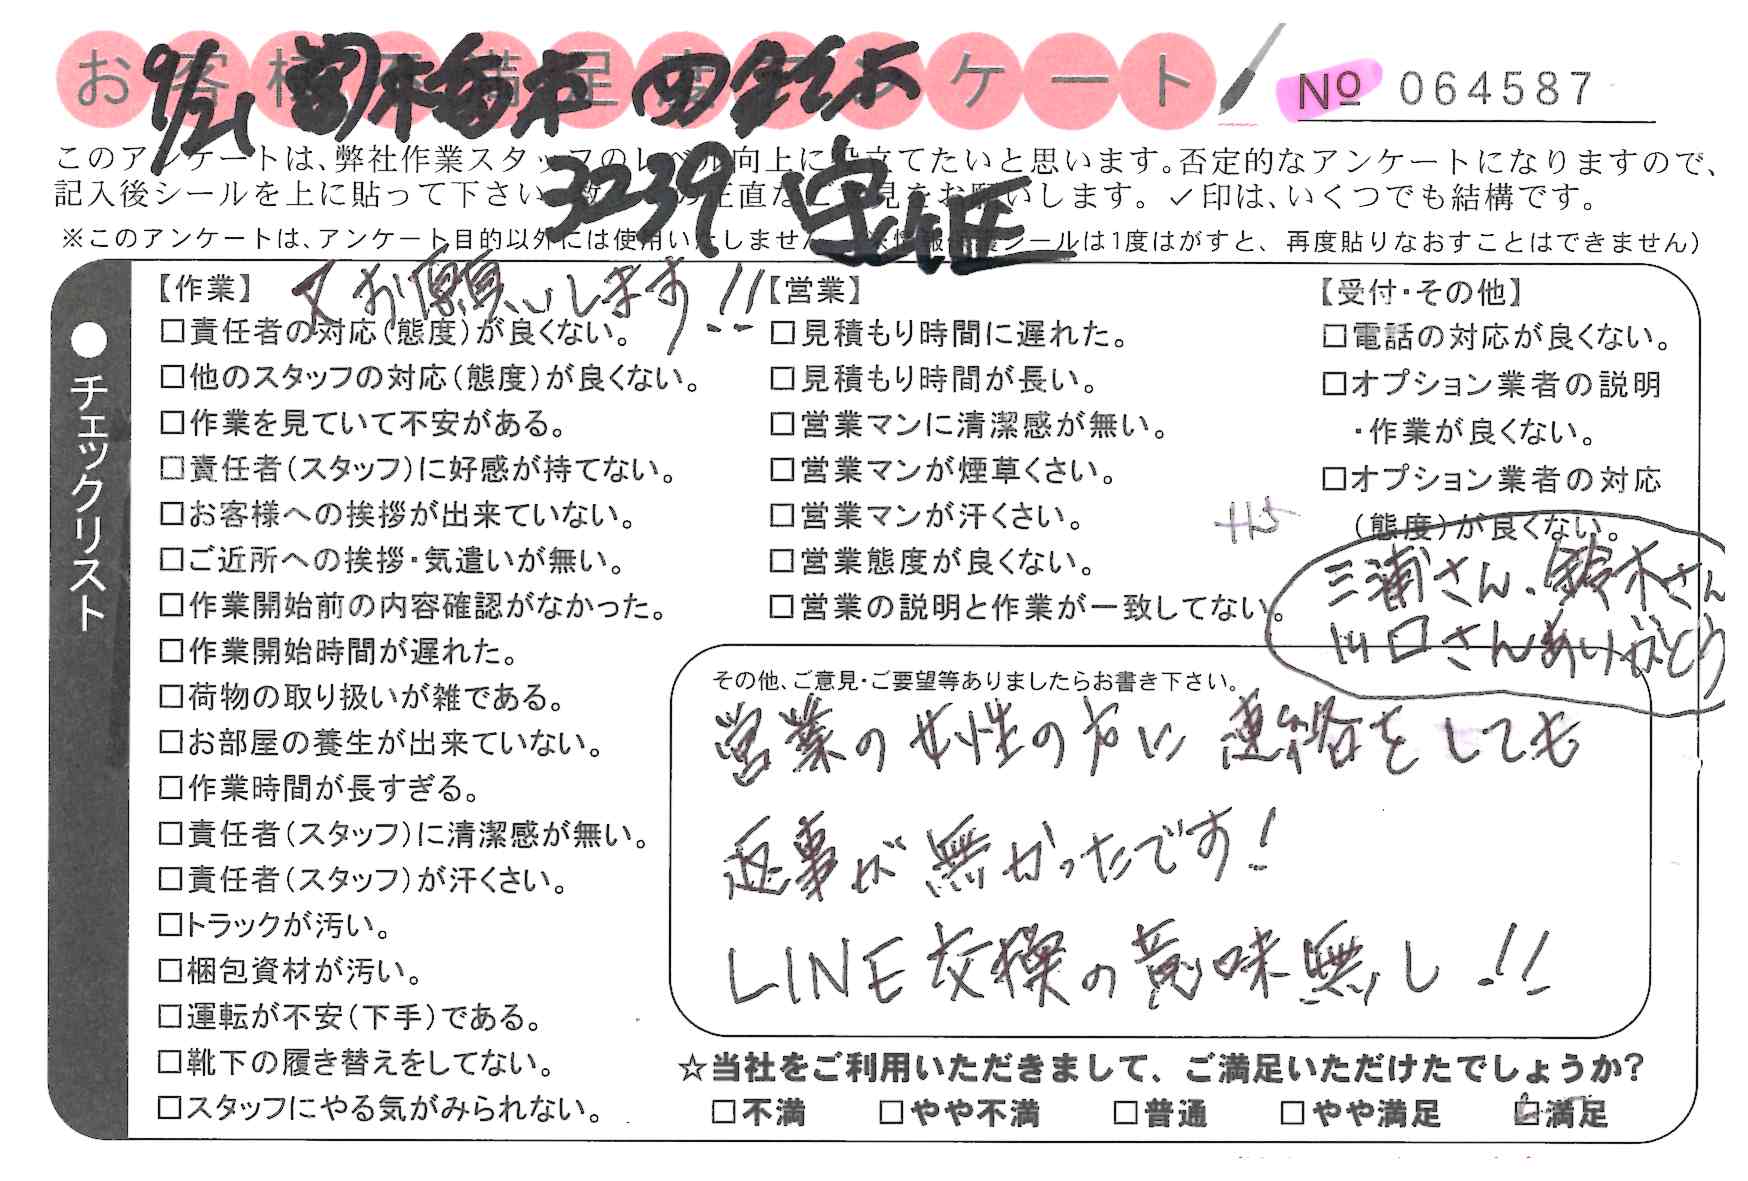 お客様不満足度アンケート
No 064587
9/21
3239
このアンケートは、弊社作業スタッフのレベル向上に役立てたいと思います。否定的なアンケートになりますので、
記入後シールを上に貼って下さい 正直な 見をお願いします。✓印は、いくつでも結構です。
※このアンケートは、アンケート目的以外には使用いたしません シールは1度はがすと、再度貼りなおすことはできません)
●チェックリスト
又お願いします!!
【作業】
□責任者の対応(態度)が良くない。
□他のスタッフの対応(態度)が良くない。
□作業を見ていて不安がある。
□責任者(スタッフ)に好感が持てない。
□お客様への挨拶が出来ていない。
□ご近所への挨拶・気遣いが無い。
□作業開始前の内容確認がなかった。
□作業開始時間が遅れた。
□荷物の取り扱いが雑である。
□お部屋の養生が出来ていない。
□作業時間が長すぎる。
□責任者(スタッフ)に清潔感が無い。
□責任者(スタッフ)が汗くさい。
□トラックが汚い。
□梱包資材が汚い。
□運転が不安(下手)である。
□靴下の履き替えをしてない。
□スタッフにやる気がみられない。
【営業】
□見積もり時間に遅れた。
□見積もり時間が長い。
□営業マンに清潔感が無い。
□営業マンが煙草くさい。
□営業マンが汗くさい。
□営業態度が良くない。
□営業の説明と作業が一致してない。
【受付・その他】
□電話の対応が良くない。
□オプション業者の説明
・作業が良くない。
□オプション業者の対応
(態度)が良くない。
+15
三浦さん、鈴木さん
川口さんありがとう
その他、ご意見・ご要望等ありましたらお書き下さい。
営業の女性の方に連絡をしても
返事が無かったです!
LINE交換の意味無し!!
☆当社をご利用いただきまして、ご満足いただけたでしょうか?
□不満 □やや不満 □普通 □やや満足 ☑満足